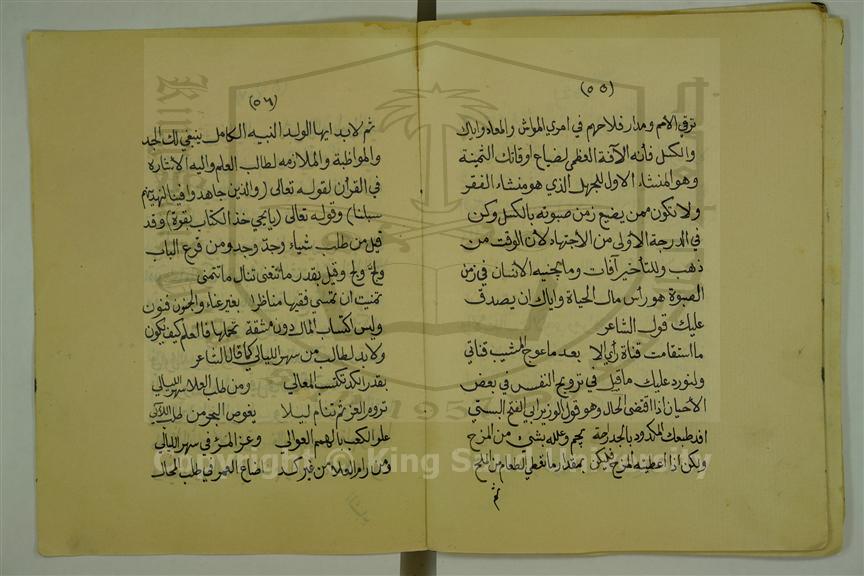 (٥٥)
ترقي الأمم ومدار فلاحهم في امري المواش والمعاد واياك
والكسل فأنه الآفة العظمى لضياع اوقاتك الثمينة
وهو المنشاء الاول للجهل الذي هو منشاء الفقر
ولا تكون ممن يضيع زمن صبوته بالكسل وكن
في الدرجة الأولى من الاجتهاد لأن الوقت من
ذهب وللتأخير آفات وما يجنيه الانسان في زمن
الصبوة هو رأس مال الحياة واياك ان يصدق
عليك قول الشاعر
ما استقامت قناة رأي إلا بعد ما عوج المشيب قناتي
ولنورد عليك ما قيل في ترويح النفس في بعض
الأحيان اذا اقتضى الحال وهو قول الوزير ابي الفتح البستي
افد طبعك المكدود بالجد راحة يجم وعلله بشيء من المزح
ولكن اذا اعطيته المزح فليكن بمقدار ما تعطي الطعام من الملح
ثم
(٥٦)
ثم لا بد ايها الولد النبيه الكامل ينبغي لك الجد
والمواظبة والملازمه لطالب العلم واليه الاشاره
في القرأن لقوله تعالى (والذين جاهدوا فينا لنهدينهم
سبلنا) وقوله تعالى (يا يحي خذ الكتاب بقوة) وقد
قيل من طلب شياء وجد وجد ومن قرع الباب
ولج ولج وقيل بقدر ما تتعنى تنال ما تتمنى
تمنيت ان تمسي فقيها مناظرا بغير عناء والجنون فنون
وليس اكتساب المال دون مشقة تحملها فالعلم كيف يكون
ولا بد لطالب من سهر الليالي كما قال الشاعر
بقدر الكد تكتسب المعالي ومن طلب العلا سهر الليالي
تروم العز ثم تنام ليلا يغوص البحر من طلب اللآلي
علو الكعب بالهمم العوالي وعز المرء في سهر الليالي
ومن رام العلا من غير كد اضاع العمر في طلب المحال
Copyright © King Saud University
1957